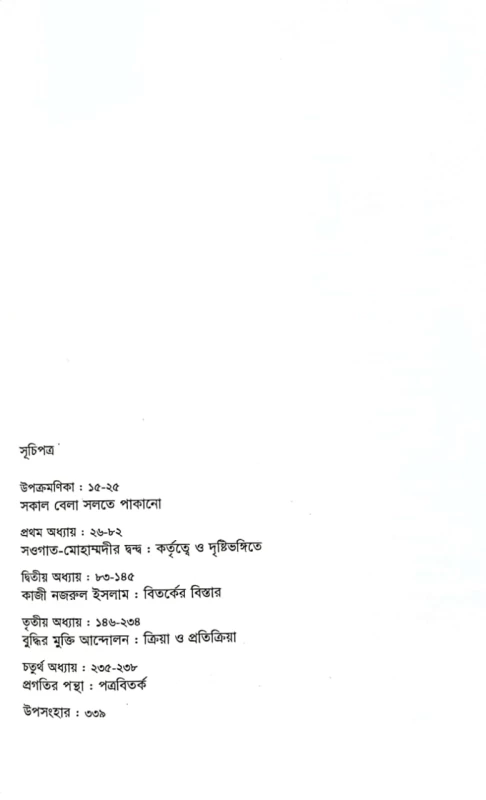 সূচিপত্র
উপক্রমণিকা : ১৫-২৫
সকাল বেলা সলতে পাকানো
প্রথম অধ্যায় : ২৬-৮২
সওগাত-মোহাম্মদীর দ্বন্দ্ব : কর্তৃত্বে ও দৃষ্টিভঙ্গিতে
দ্বিতীয় অধ্যায় : ৮৩-১৪৫
কাজী নজরুল ইসলাম : বিতর্কের বিস্তার
তৃতীয় অধ্যায় : ১৪৬-২৩৪
বুদ্ধির মুক্তি আন্দোলন : ক্রিয়া ও প্রতিক্রিয়া
চতুর্থ অধ্যায় : ২৩৫-২৩৮
প্রগতির পন্থা : পত্রবিতর্ক
উপসংহার : ৩৩৯